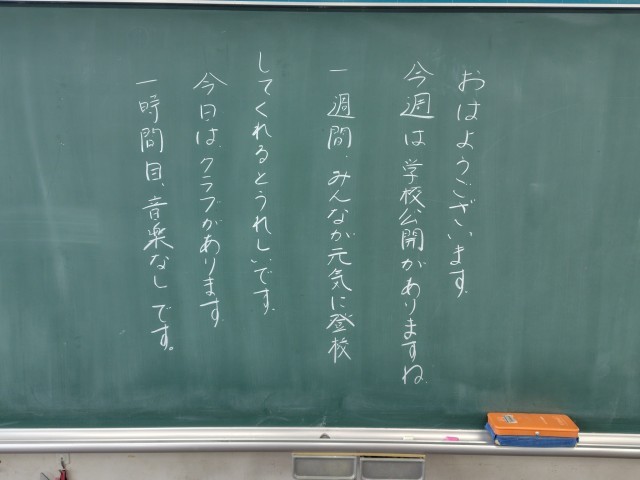 おはようございます.
今週は学校公開がありますね.
一週間、みんなが元気に登校
してくれるとうれしいです.
今日は、クラブがあります.
一時間目、音楽なしです。